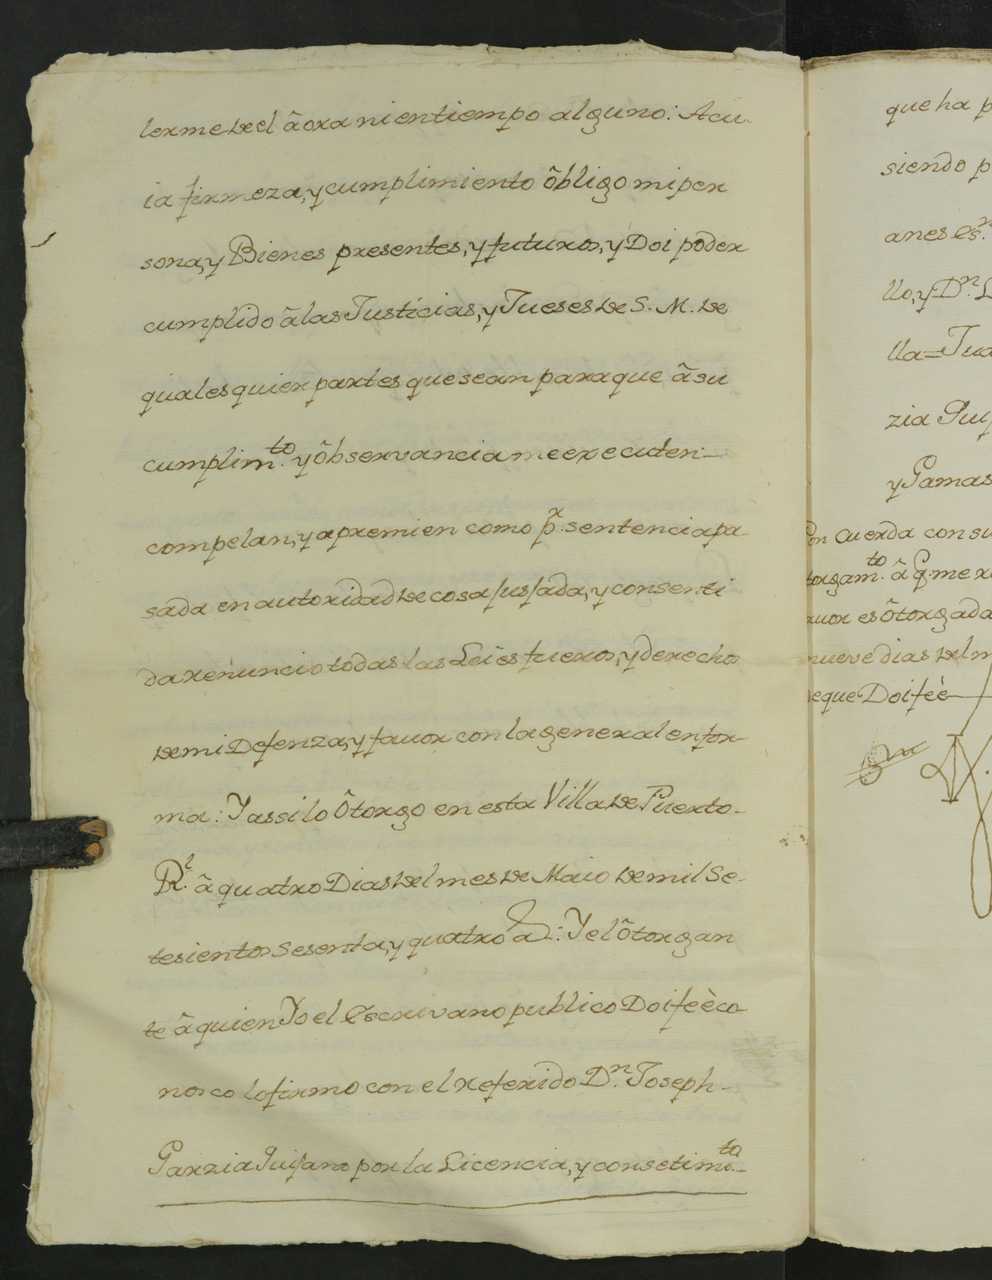 lerme de el âora ni entiempo alguno: Acu-
ia firmeza, y cumplimiento ôbligo mi per
sona, y Bienes presentes, y futuros, y Doi poder
cumplido â las Justicias, y Jueses de S. M. de
quales quier partes que sean para que â su
cumplim.to y ôbservancia me executen-
compelan, y apremien como p.r sentencia pa-
sada en autoridad de cosa jusgada, y consenti
da renuncio todas las Leies fueros, y derechos
de mi Defenza, y favor con la general enfor-
ma: Y assi lo Ôtorgo en esta Villa de Puerto-
R.l â quatro Dias del mes de Maio de mil Se-
tesientos Sesenta, y quatro a.s: Y el Ôtorgan
te â quien Yo el Escrivano publico Doi feè co
nosco lo firmo con el referido D.n Joseph-
Garzia Quijano por la Licencia, y consetim.to-
que ha p
siendo p
anes Es.n
llo, y D.n L
lla= Jua
zia Quij
y Pamas
Con cuerda con su
torgam.to â q. me re
favor es ôtorgada
nueve dias del m
de que Doi feè